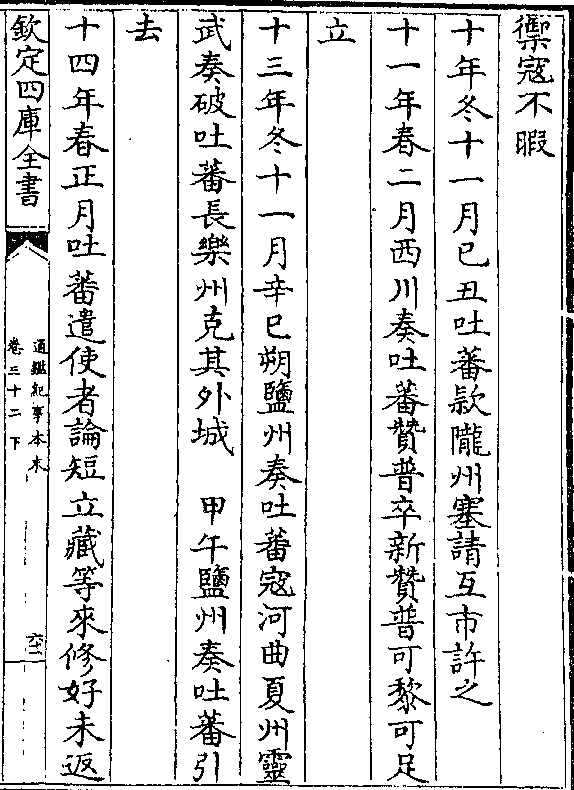 禦寇不暇
十年冬十一月己丑吐蕃款隴州塞請互市許之
十一年春二月西川奏吐蕃贊普卒新贊普可黎可足
立
十三年冬十一月辛巳朔鹽州奏吐蕃寇河曲夏州靈
武奏破吐蕃長樂州克其外城　甲午鹽州奏吐蕃引
去
十四年春正月吐蕃遣使者論短立藏等來修好未返
欽定四庫全書
通鑑紀事本末
卷三十二下